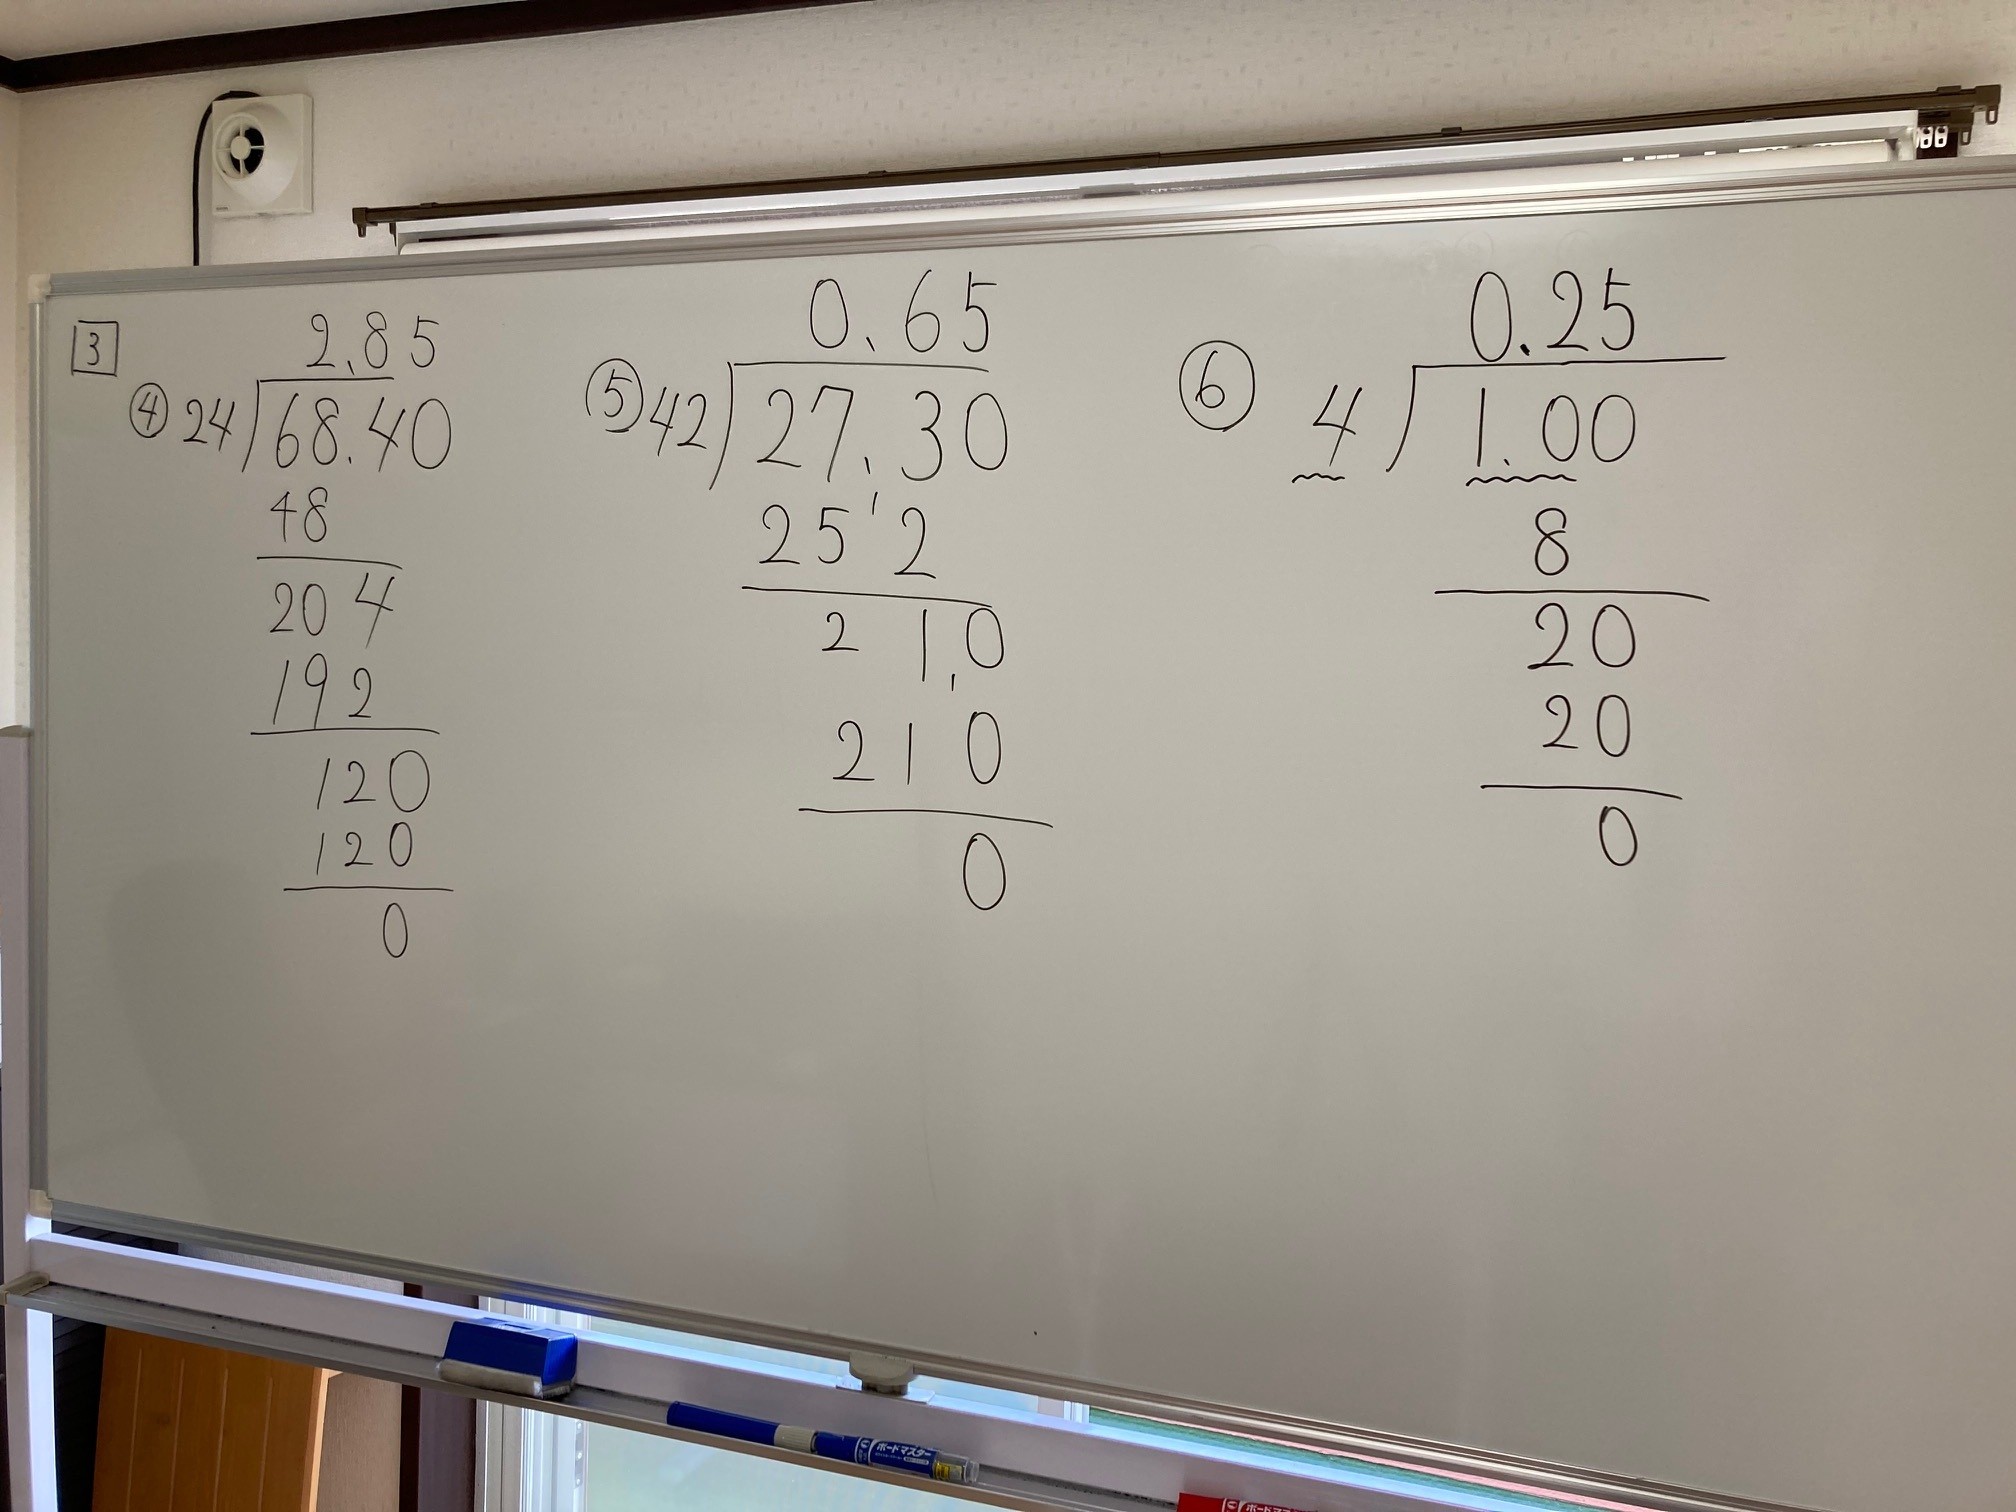 3
④
2.85
24)68.40
48
204
192
120
120
0
⑤
0.65
42)27.30
252
210
210
0
⑥
0.25
4)1.00
8
20
20
0
ボードマスター
ボードマスター